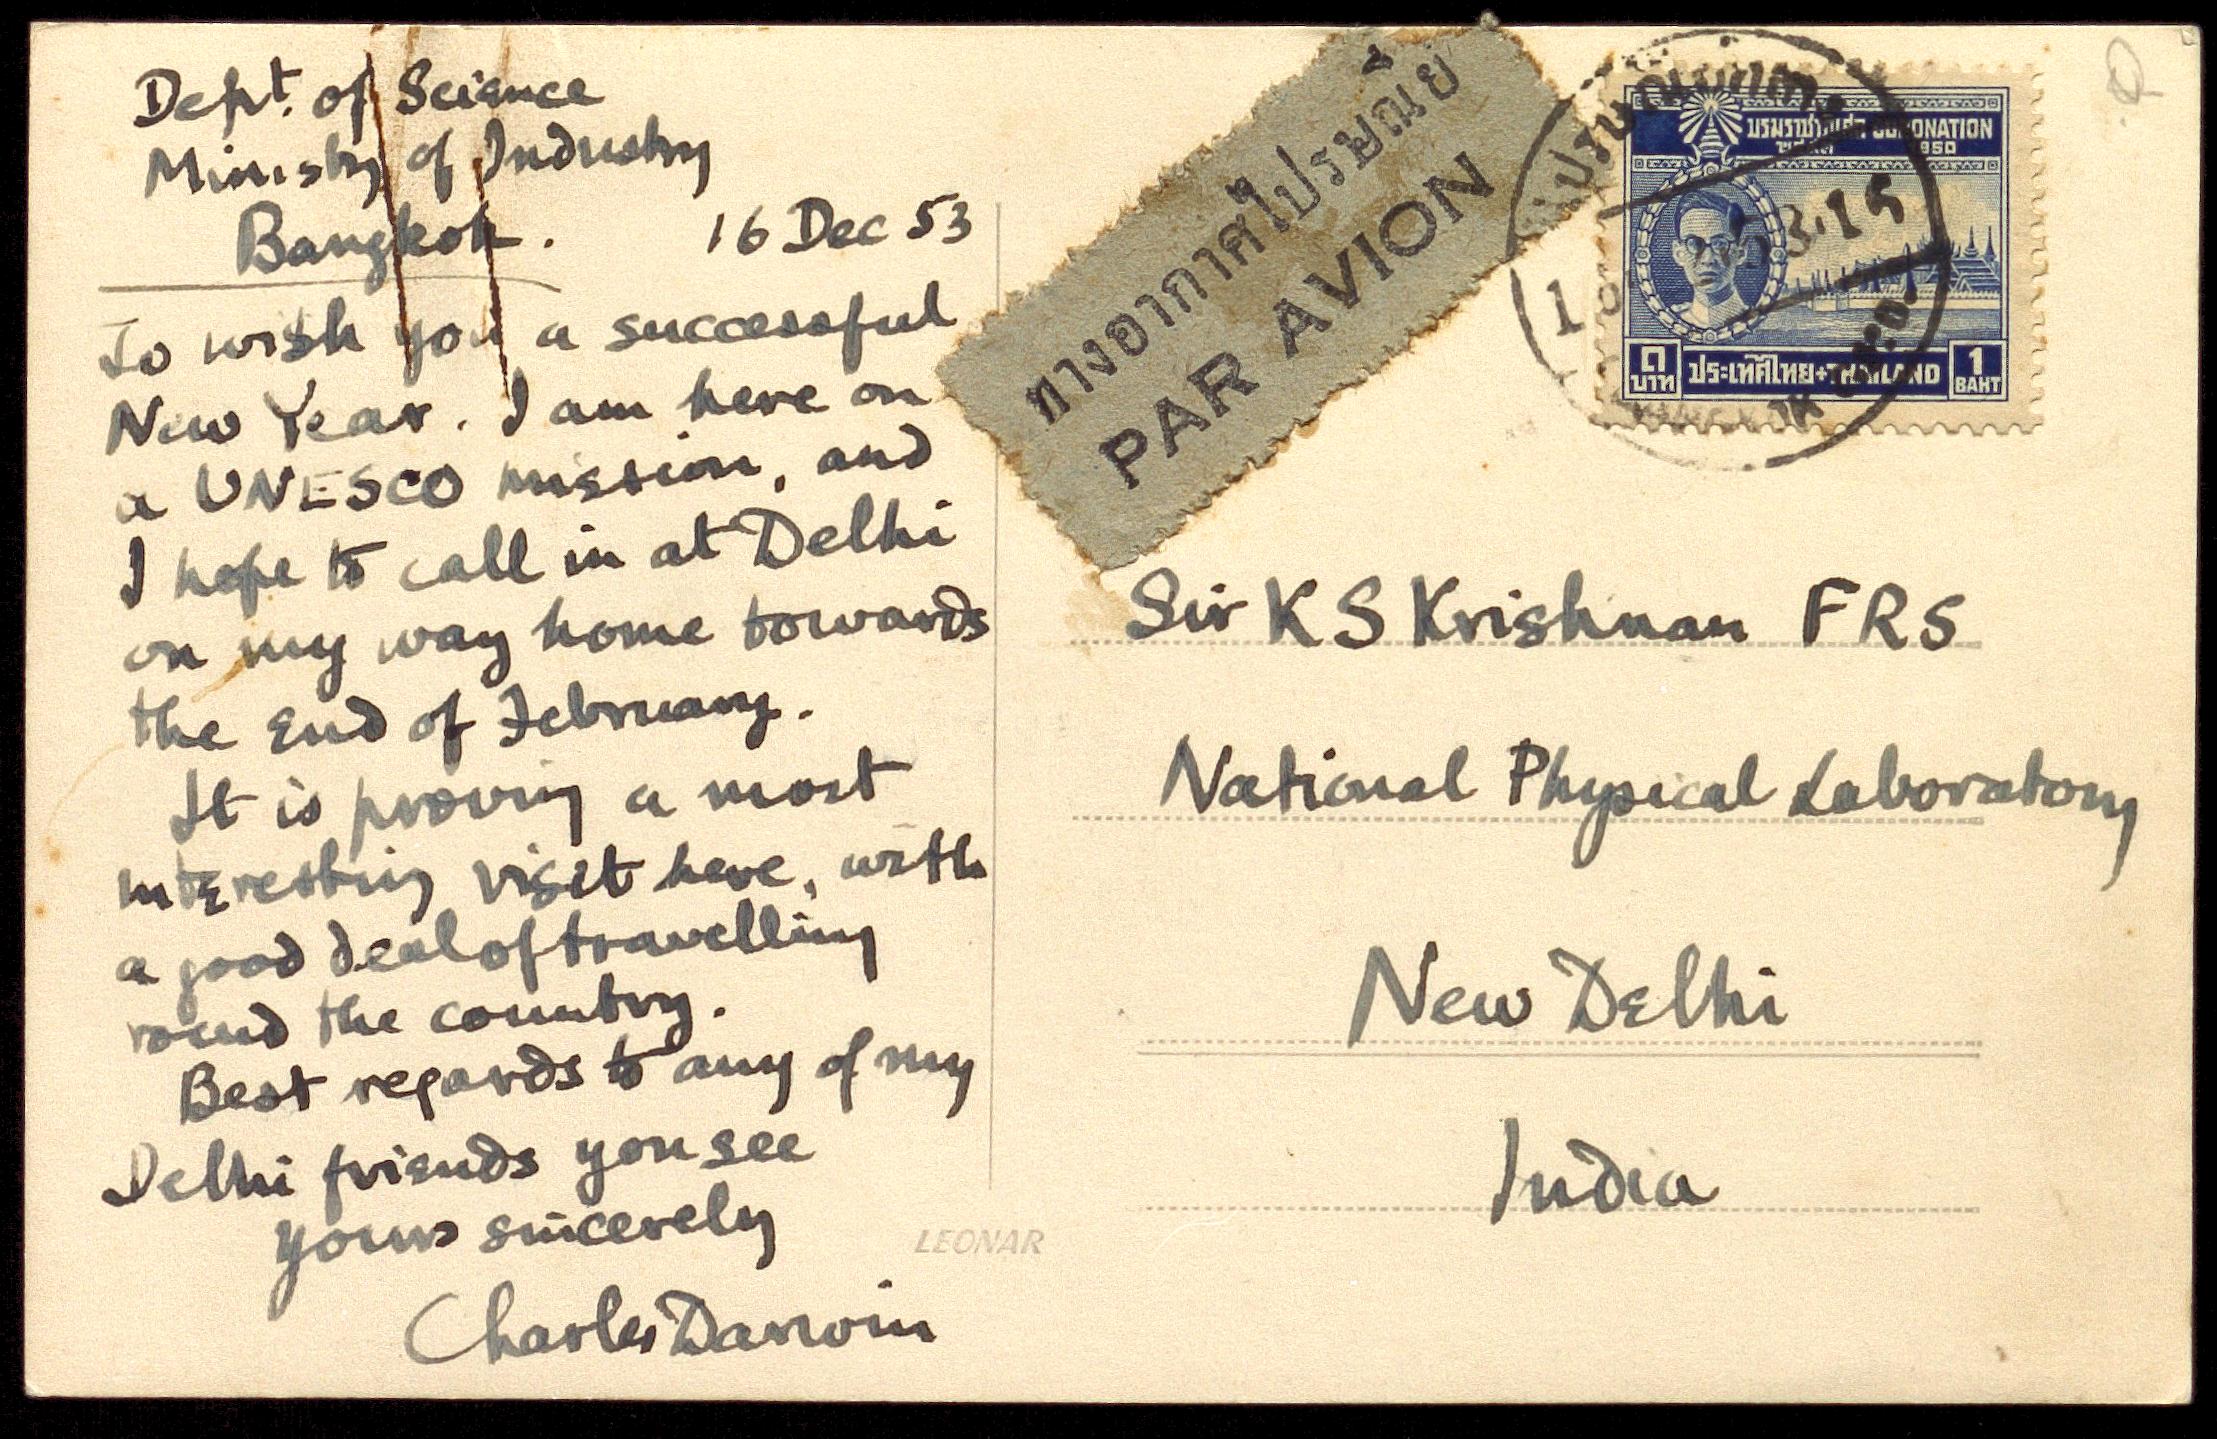 Dept. of Science
Ministry of Industry
Bangkok.
16 Dec 53
To wish you a successful
New Year. I am here on
a UNESCO mission, and
I hope to call in at Delhi
on my way home towards
the end of February.
It is proving a most
interesting visit here, with
a good deal of travelling
round the country.
Best regards to any of my
Delhi friends you see
yours sincerely
Charles Darwin
LEONAR
ทางอากาศไปรษณีย์
PAR AVION
บรมราชาภิเษก CORONATION
๒๔๙๓ 1950
๑ บาท
ประเทศไทย+THAILAND
1 BAHT
Sir K S Krishnan FRS
National Physical Laboratory
New Delhi
India